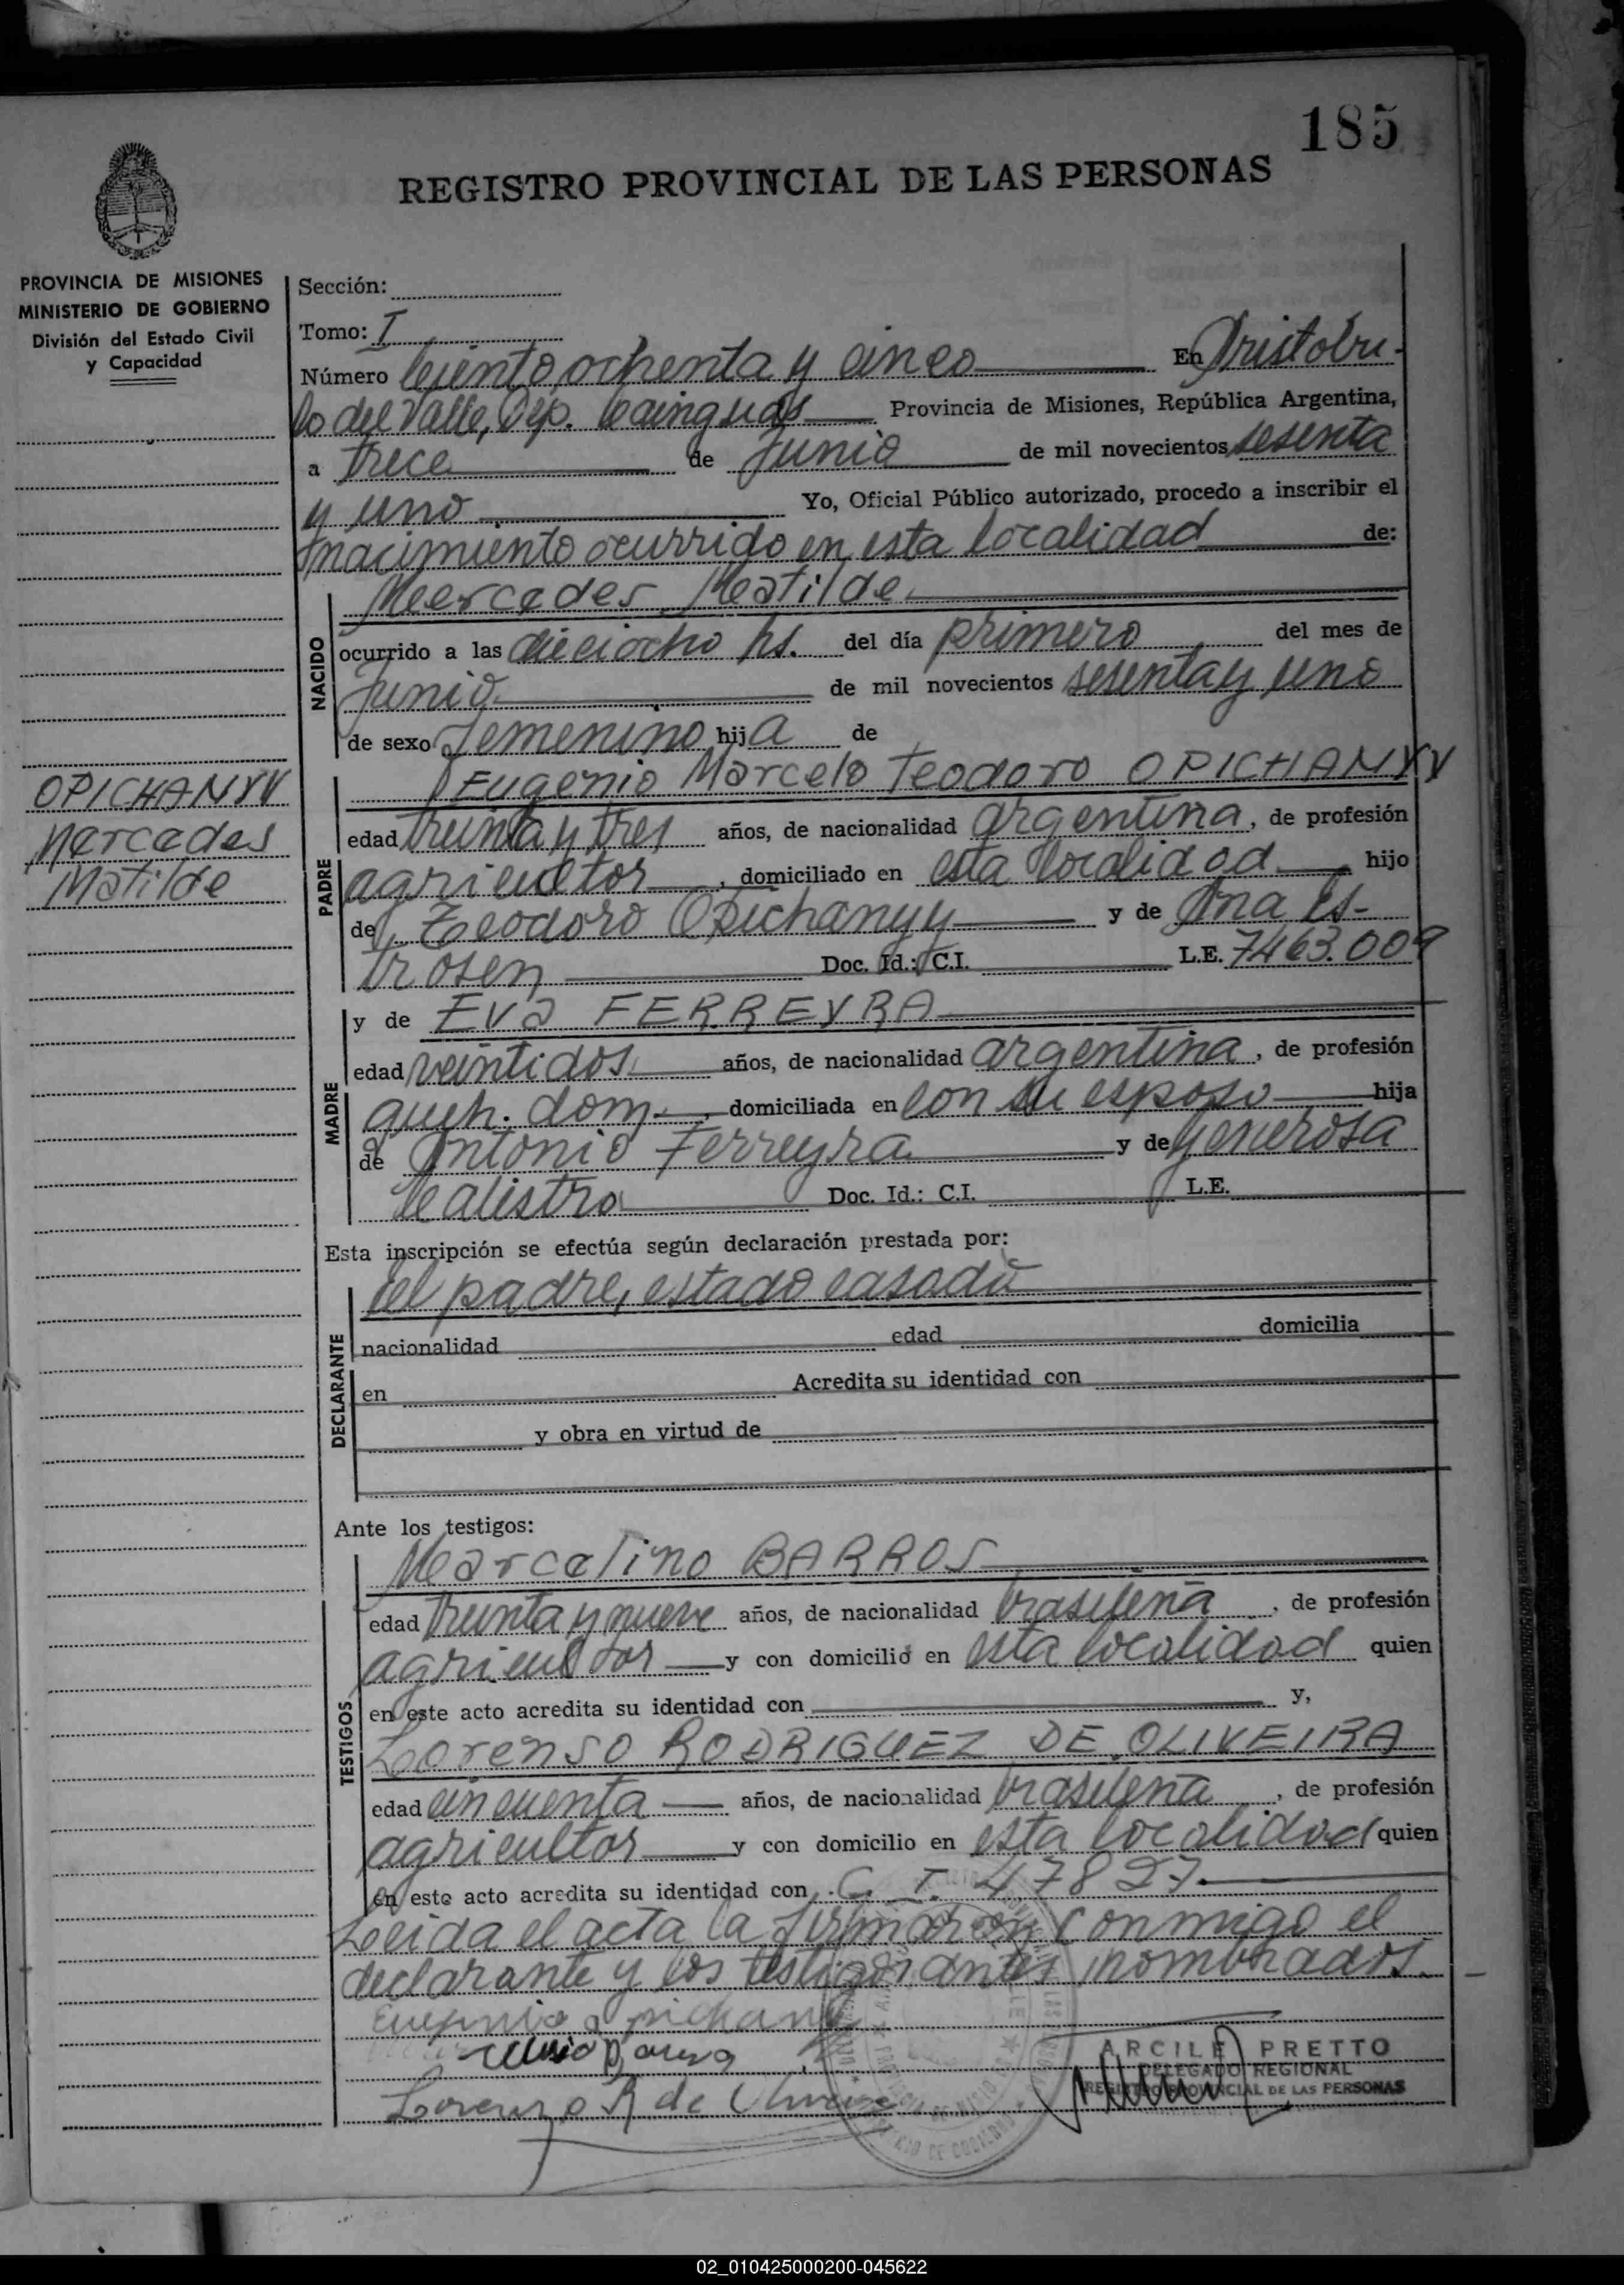 185
REGISTRO PROVINCIAL DE LAS PERSONAS
PROVINCIA DE MISIONES
MINISTERIO DE GOBIERNO
División del Estado Civil
y Capacidad
OPICHANYY
Mercedes
Matilde
Sección:
Tomo: I
Número Ciento ochenta y cinco En Aristobu-
lo del Valle, Dep. Cainguás Provincia de Misiones, República Argentina,
a trece de Junio de mil novecientos sesenta
y uno Yo, Oficial Público autorizado, procedo a inscribir el
nacimiento ocurrido en esta localidad de:
NACIDO
Mercedes Matilde
ocurrido a las dieciocho hs. del día primero del mes de
Junio de mil novecientos sesenta y uno
de sexo femenino hija de
PADRE
Eugenio Marcelo Teodoro OPICHANYY
edad treinta y tres años, de nacionalidad argentina, de profesión
agricultor, domiciliado en esta localidad hijo
de Teodoro Opichanyy y de Ana Is-
trosen Doc. Id.: C.I. L.E. 7463.009
MADRE
y de Eva FERREYRA
edad veintidos años, de nacionalidad argentina, de profesión
queh. dom., domiciliada en con su esposo hija
de Antonio Ferreyra y de Generosa
Calistro Doc. Id.: C.I. L.E.
Esta inscripción se efectúa según declaración prestada por:
DECLARANTE
el padre, estado casado
nacionalidad edad domicilia
en Acredita su identidad con
y obra en virtud de
Ante los testigos:
TESTIGOS
Marcelino BARROS
edad treinta y nueve años, de nacionalidad brasileña, de profesión
agricultor y con domicilio en esta localidad quien
en este acto acredita su identidad con y,
Lorenso RODRIGUEZ DE OLIVEIRA
edad cincuenta años, de nacionalidad brasileña, de profesión
agricultor y con domicilio en esta localidad quien
en este acto acredita su identidad con C. I. 47827.
Leida el acta la firmaron conmigo el
declarante y los testigos antes nombrados.
Eugenio Opichany
Lorenzo R de Oliveira
ARCILE PRETTO
DELEGADO REGIONAL
REGISTRO PROVINCIAL DE LAS PERSONAS
02_010425000200-045622